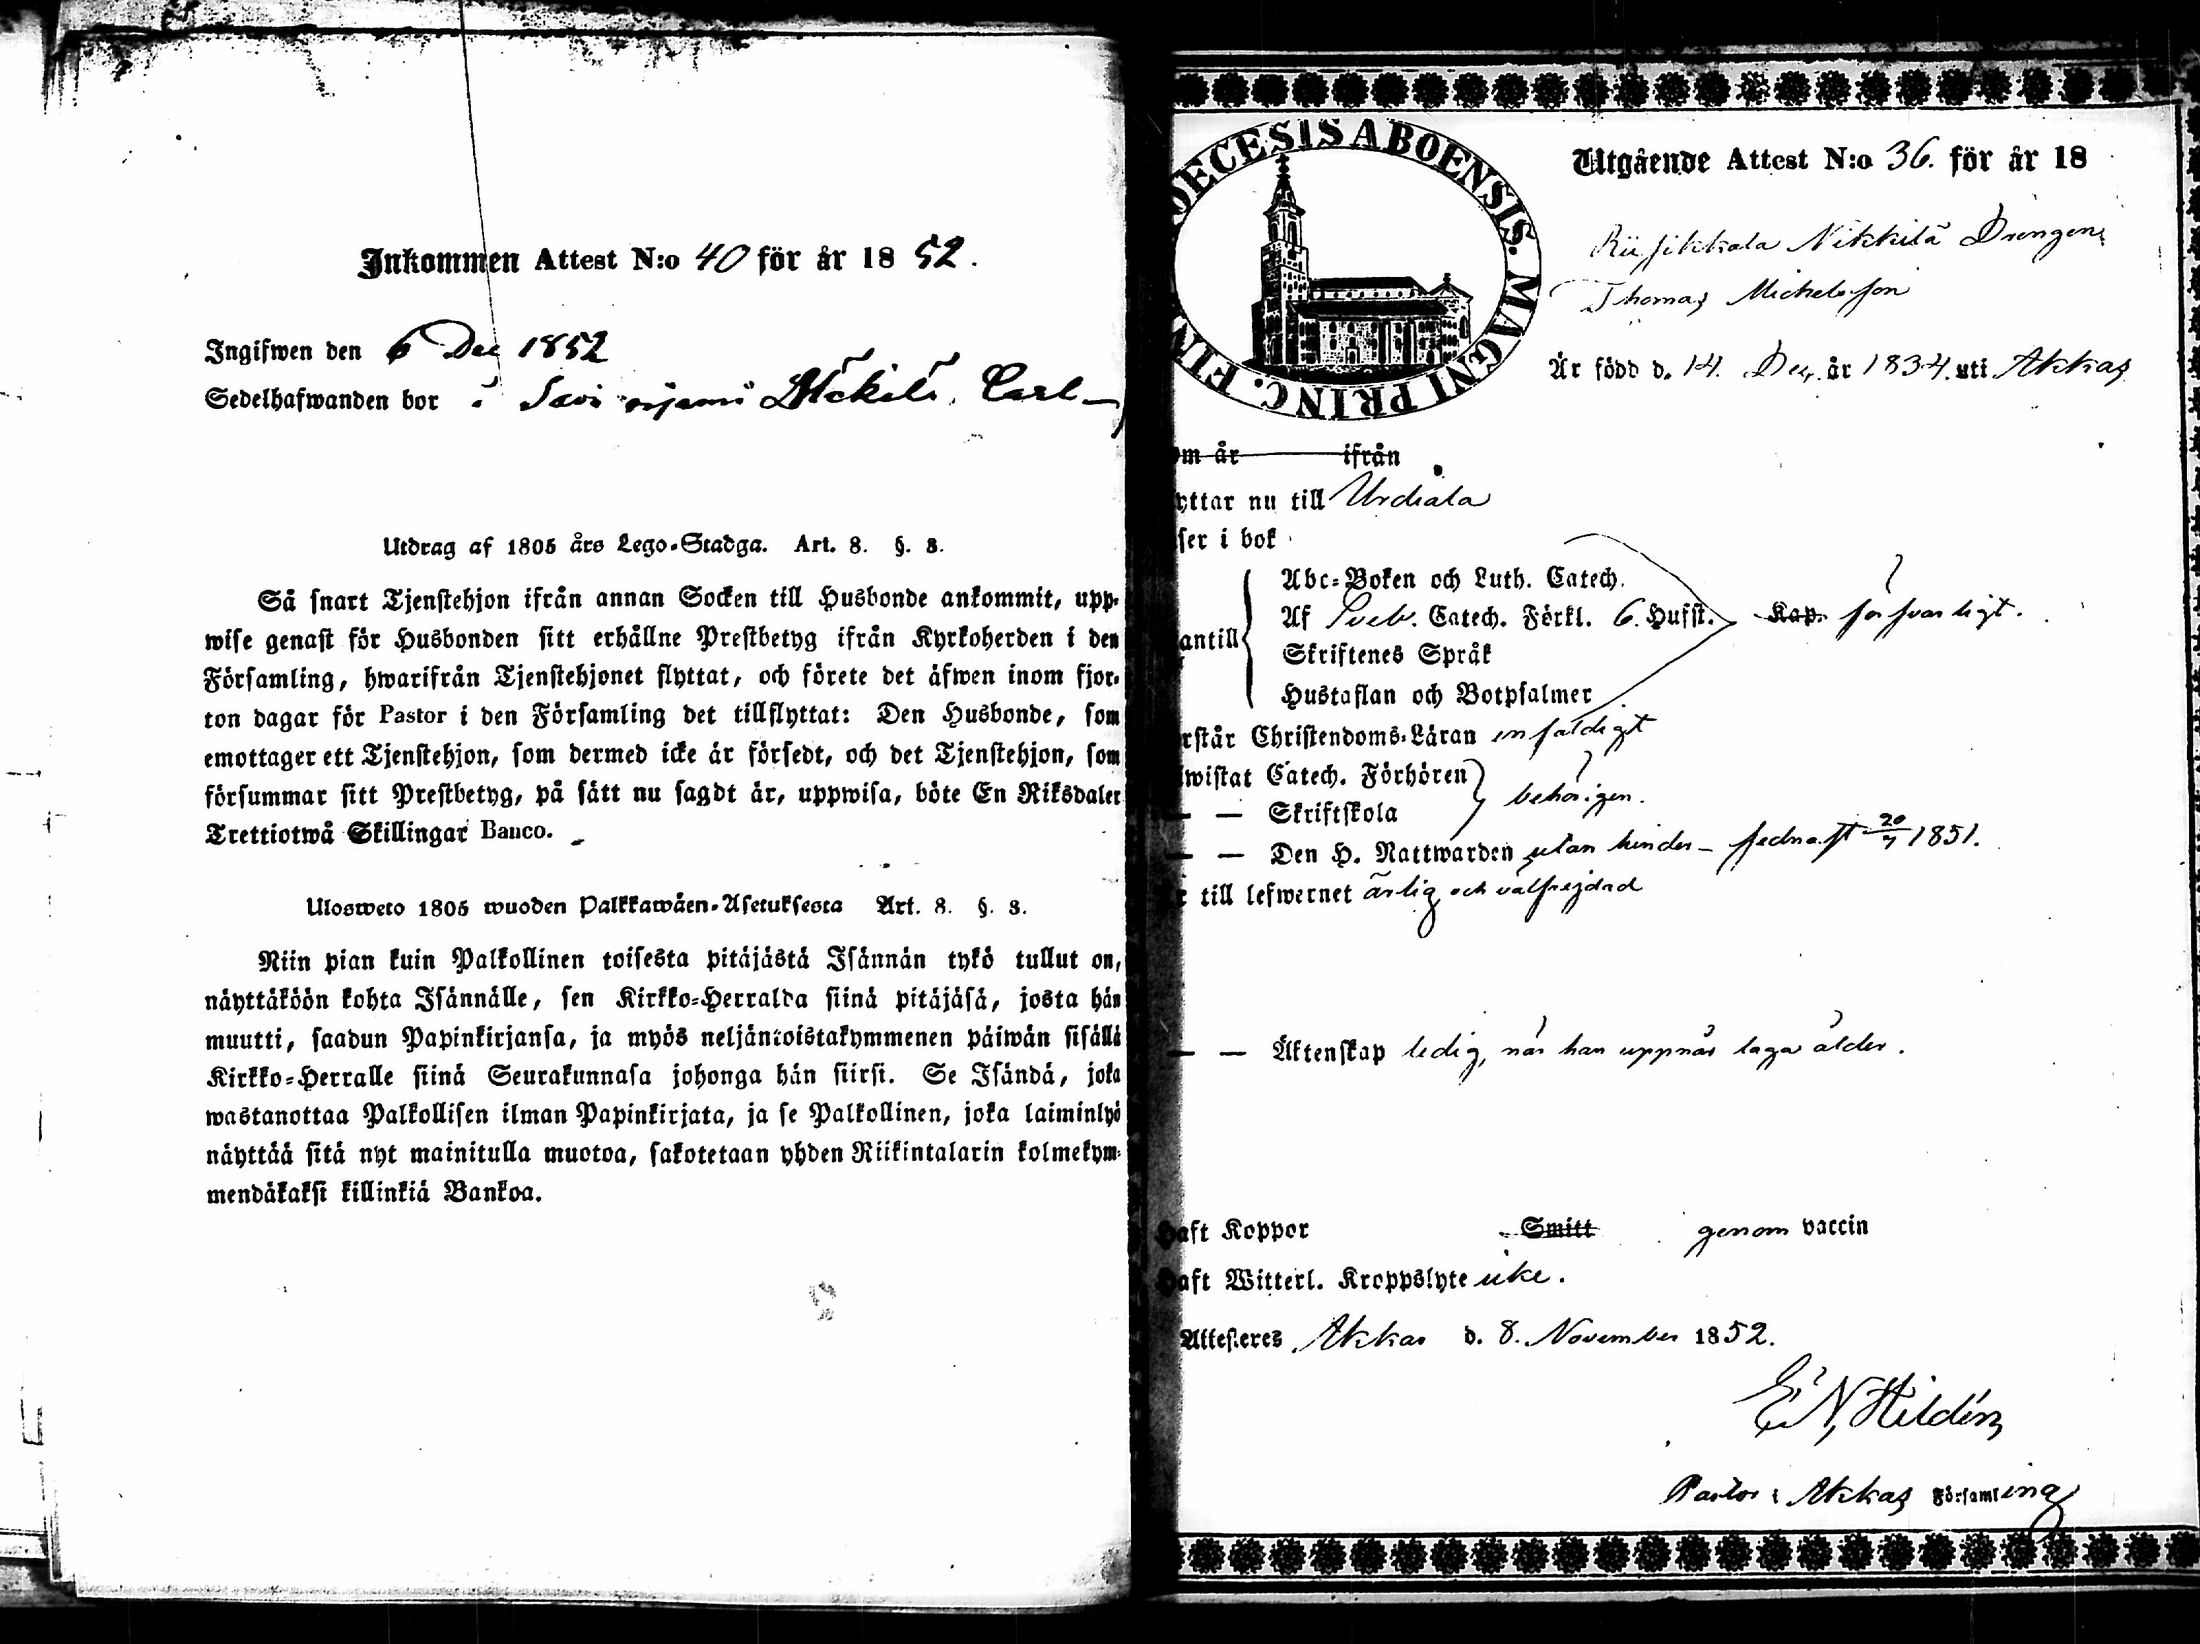 Inkommen Attest N:o 40 för år 1852.
Ingifwen den 6 Dec 1852
Sedelhafwanden bor i Carl-
Utdrag af 1805 års Lego-Stadga. Art. 8. §. 3.
Så snart Tjenstehjon ifrån annan Socken till Husbonde ankommit, upp-
wise genast för Husbonden sitt erhållne Prestbetyg ifrån Kyrkoherden i den
Församling, hwarifrån Tjenstehjonet flyttat, och förete det äfwen inom fjor-
ton dagar för Pastor i den Församling det tillflyttat: Den Husbonde, som
emottager ett Tjenstehjon, som dermed icke är försedt, och det Tjenstehjon, som
försummar sitt Prestbetyg, på sätt nu sagdt är, uppwisa, böte En Riksdaler
Trettiotwå Skillingar Banco.
Ulosweto 1805 wuoden Palkkawäen-Asetuksesta Art. 8. §. 3.
Niin pian kuin Palkollinen toisesta pitäjästä Isännän tykö tullut on,
näyttäköön kohta Isännälle, sen Kirkko-Herralda siinä pitäjäsä, josta hän
muutti, saadun Papinkirjansa, ja myös neljäntoistakymmenen päiwän sisällä
Kirkko-Herralle siinä Seurakunnasa johonga hän siirsi. Se Isändä, joka
wastanottaa Palkollisen ilman Papinkirjata, ja se Palkollinen, joka laiminlyö
näyttää sitä nyt mainitulla muotoa, sakotetaan yhden Riikintalarin kolmekym-
mendäkaksi killinkiä Bankoa.
DECESIS ABOENSIS. MAGNI PRINC. FIN
Utgående Attest N:o 36. för år 18
Riisikkala Nikkilä Drengen
Thomas Michelsson
Är född d. 14. Dec. år 1834. uti Akkas
om år ifrån
yttar nu till Urdiala
ser i bok
antill
Abc-Boken och Luth. Catech.
Af Sveb. Catech. Förkl. 6. Hufst. Kap. försvarligt.
Skriftenes Språk
Hustaflan och Botpsalmer
rstår Christendoms-Läran enfaldigt
wistat Catech. Förhören
— — Skriftskola behörigen.
— — Den H. Nattwarden utan hinder – sednast 20/7 1851.
r till lefwernet ärlig och välfrejdad
— — Äktenskap ledig, når han uppnår laga ålder.
Haft Koppor Smitt genom vaccin
Haft Witterl. Kroppslyte icke.
Attesteres Akkas d. 8. November 1852.
E N Hildén
Pastor i Akkas Församling